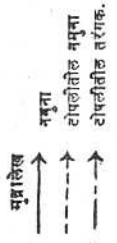 मुद्रालेख
नमुना
टोपलीतील नमुना
टोपलीतील तरंगक.